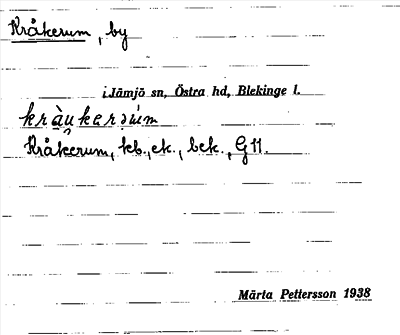 Kråkerum, by
i Jämjö sn, Östra hd, Blekinge l.
Kråkerum, kb., ek., bek., G 11.
Märta Pettersson 1938